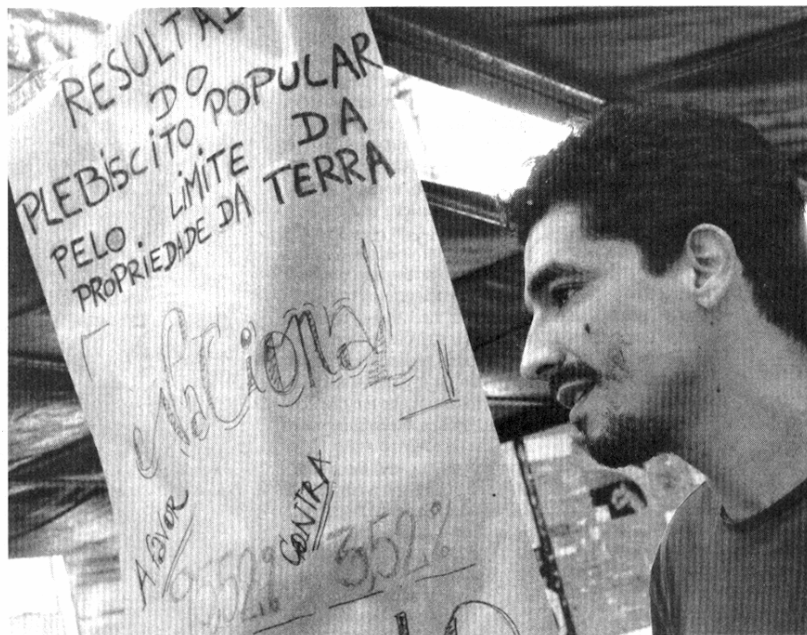 RESULTA
DO
PLEBISCITO POPULAR
PELO LIMITE DA
PROPRIEDADE DA TERRA
Nacional
A FAVOR CONTRA
3,52%